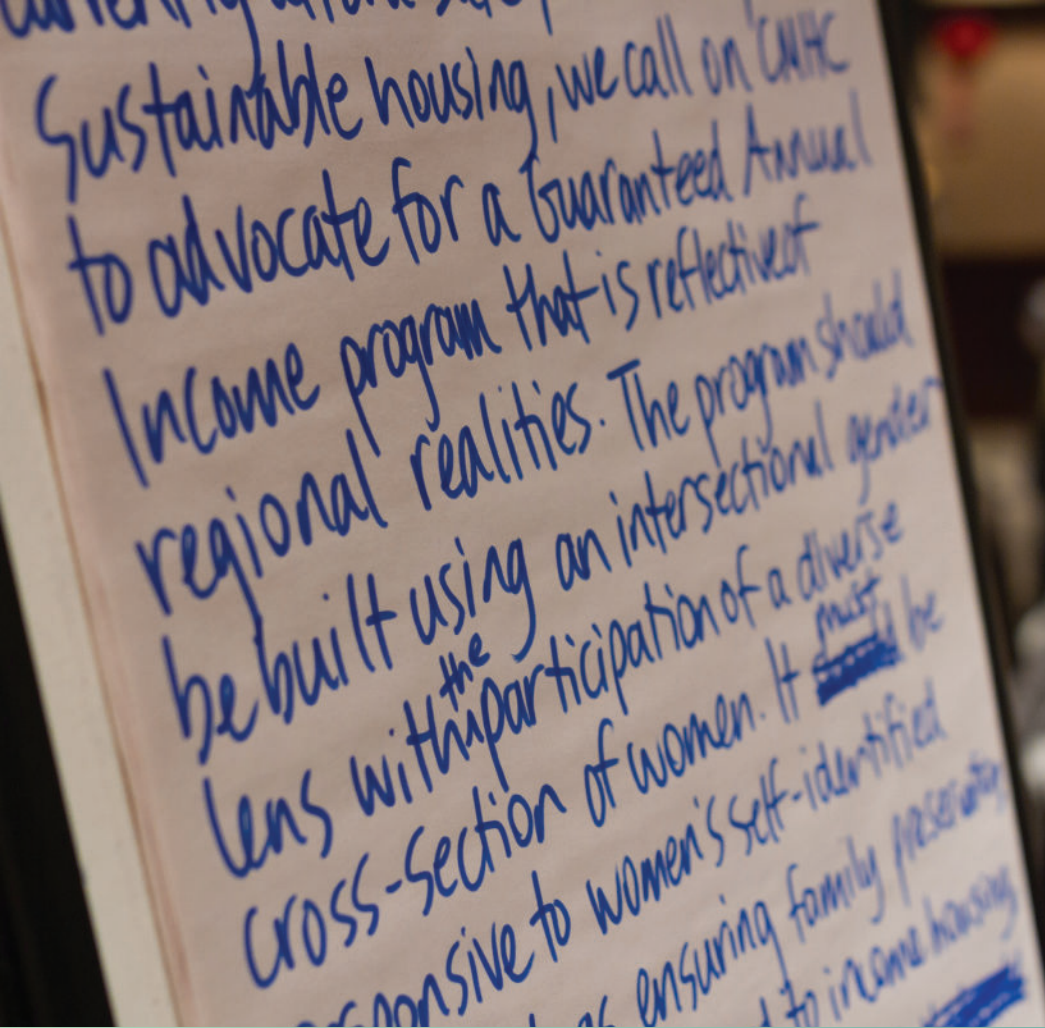 Sustainable housing, we call on CNHC
to advocate for a Guaranteed Annual
Income program that is reflective of
regional realities. The program should
be built using an intersectional gender
lens with the participation of a diverse
cross-section of women. It must be
responsive to women's self-identified
ensuring family preservation,
to income housing